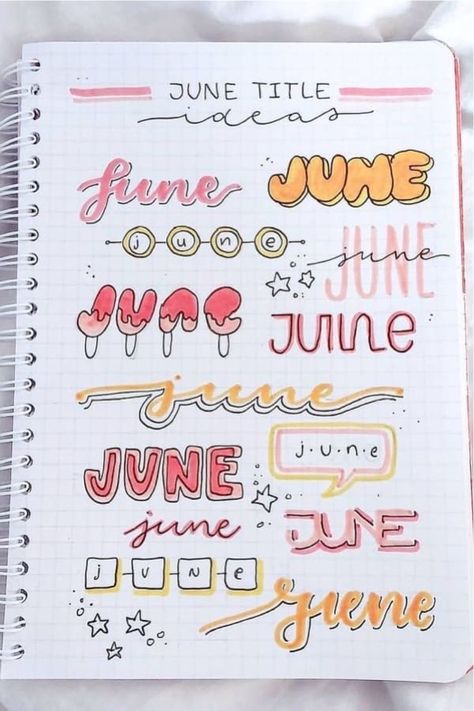 JUNE TITLE
ideas
June
JUNE
june
JUNE
june
JUNE
JUNE
june
JUNE
j·u·n·e
june
JUNE
JUNE
june